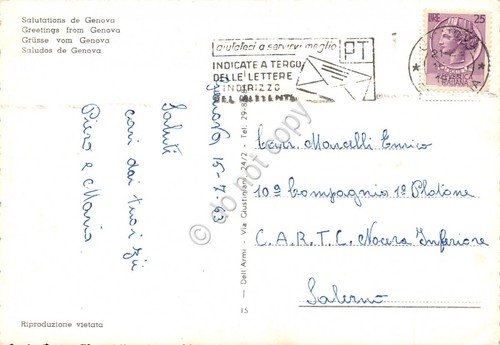 Salutations de Genova
Greetings from Genova
Grüsse vom Genova
Saludos de Genova
aiutateci a servirvi meglio
PT
INDICATE A TERGO
DELLE LETTERE
INDIRIZZO
DEL MITTENTE
LIRE 25
Genova 15-7-63
Saluti
cari dai tuoi zii
Piero e Maria
Dell'Armi - Via Giustiniani 24/2 - Tel. 29-8
15
Marcelli Enrico
10ª Compagnia 1º Plotone
C.A.R.T.C. Nocera Inferiore
Salerno
Riproduzione vietata
do not copy